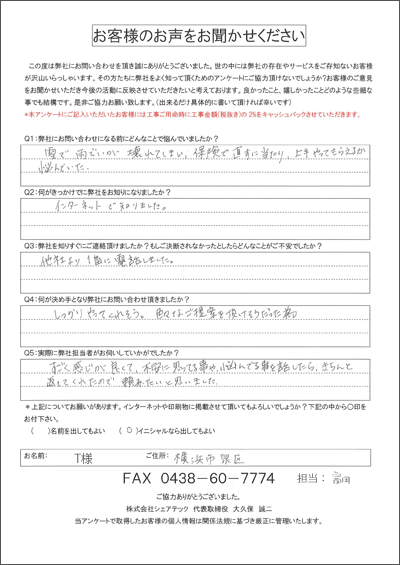 お客様のお声をお聞かせください
この度は弊社にお問い合わせを頂き誠にありがとうございました。世の中には弊社の存在やサービスをご存知ないお客様
が沢山いらっしゃいます。その方たちに弊社をよく知って頂くためのアンケートにご協力頂けないでしょうか？お客様のご意見
をお聞かせいただき今後の活動に反映させていただきたいと考えております。良かったこと、嬉しかったことどのような些細な
事でも結構です。是非ご協力お願い致します。（出来るだけ具体的に書いて頂ければ幸いです）
*本アンケートにご記入いただいたお客様には工事ご用命時に工事金額(税抜き)の 2%をキャッシュバックさせていただきます。
Q1：弊社にお問い合わせになる前にどんなことで悩んでいましたか？
雪で 雨どいが 壊れてしまい、保険で直すに当たり、上手くやってもらえるか
悩んでいた。
Q2：何がきっかけでに弊社をお知りになりましたか？
インターネットで知りました。
Q3：弊社を知りすぐにご連絡頂けましたか？もしご決断されなかったとしたらどんなことがご不安でしたか？
他社より 1番に電話しました。
Q4：何が決め手となり弊社にお問い合わせ頂きましたか？
しっかりやってくれそう。色々なご提案を頂けそうだった為
Q5：実際に弊社担当者がお伺いしていかがでしたか？
すごく感じが良くて、不安に思ってる事や、悩んでる事を話したら、きちんと
返してくれたので 頼みたいと思いました。
＊上記についてお願いがあります。インターネットや印刷物に掲載させて頂いてもよろしいでしょうか？下記の中から〇印を
お付下さい。
（　）名前を出してもよい　（ O ）イニシャルなら出してもよい
お名前：　T様　ご住所：　横浜市泉区
FAX 0438-60-7774　担当：高田
ご協力ありがとうございました。
株式会社シェアテック 代表取締役 大久保 誠二
当アンケートで取得したお客様の個人情報は関係法規に基づき厳正に管理いたします。